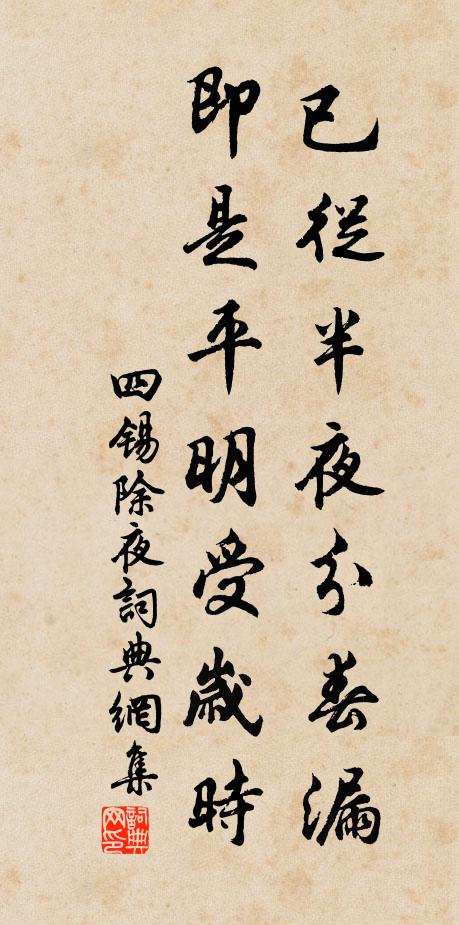 已從半夜分春漏
即是平明受歲時
四錫除夜詞典網集
詞典網印